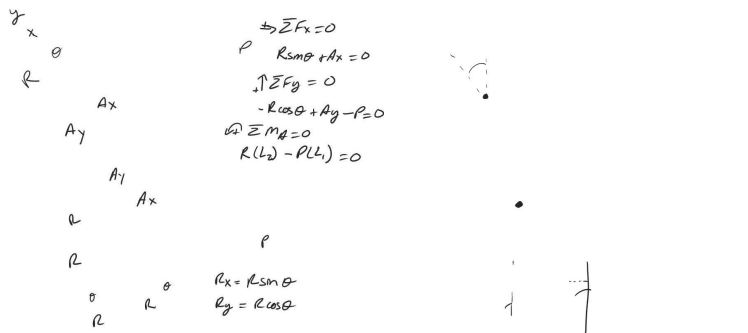 y
x
θ
R
Ax
Ay
Ay
Ax
R
R
θ
θ
R
R
P
P
+→ΣFx=0
Rsinθ+Ax=0
+↑ΣFy=0
-Rcosθ+Ay-P=0
ΣMA=0
R(L2)-P(L1)=0
Rx=Rsinθ
Ry=Rcosθ